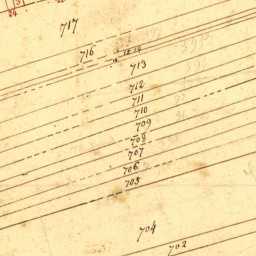 717
716
713
712
711
710
709
708
707
706
705
704
702